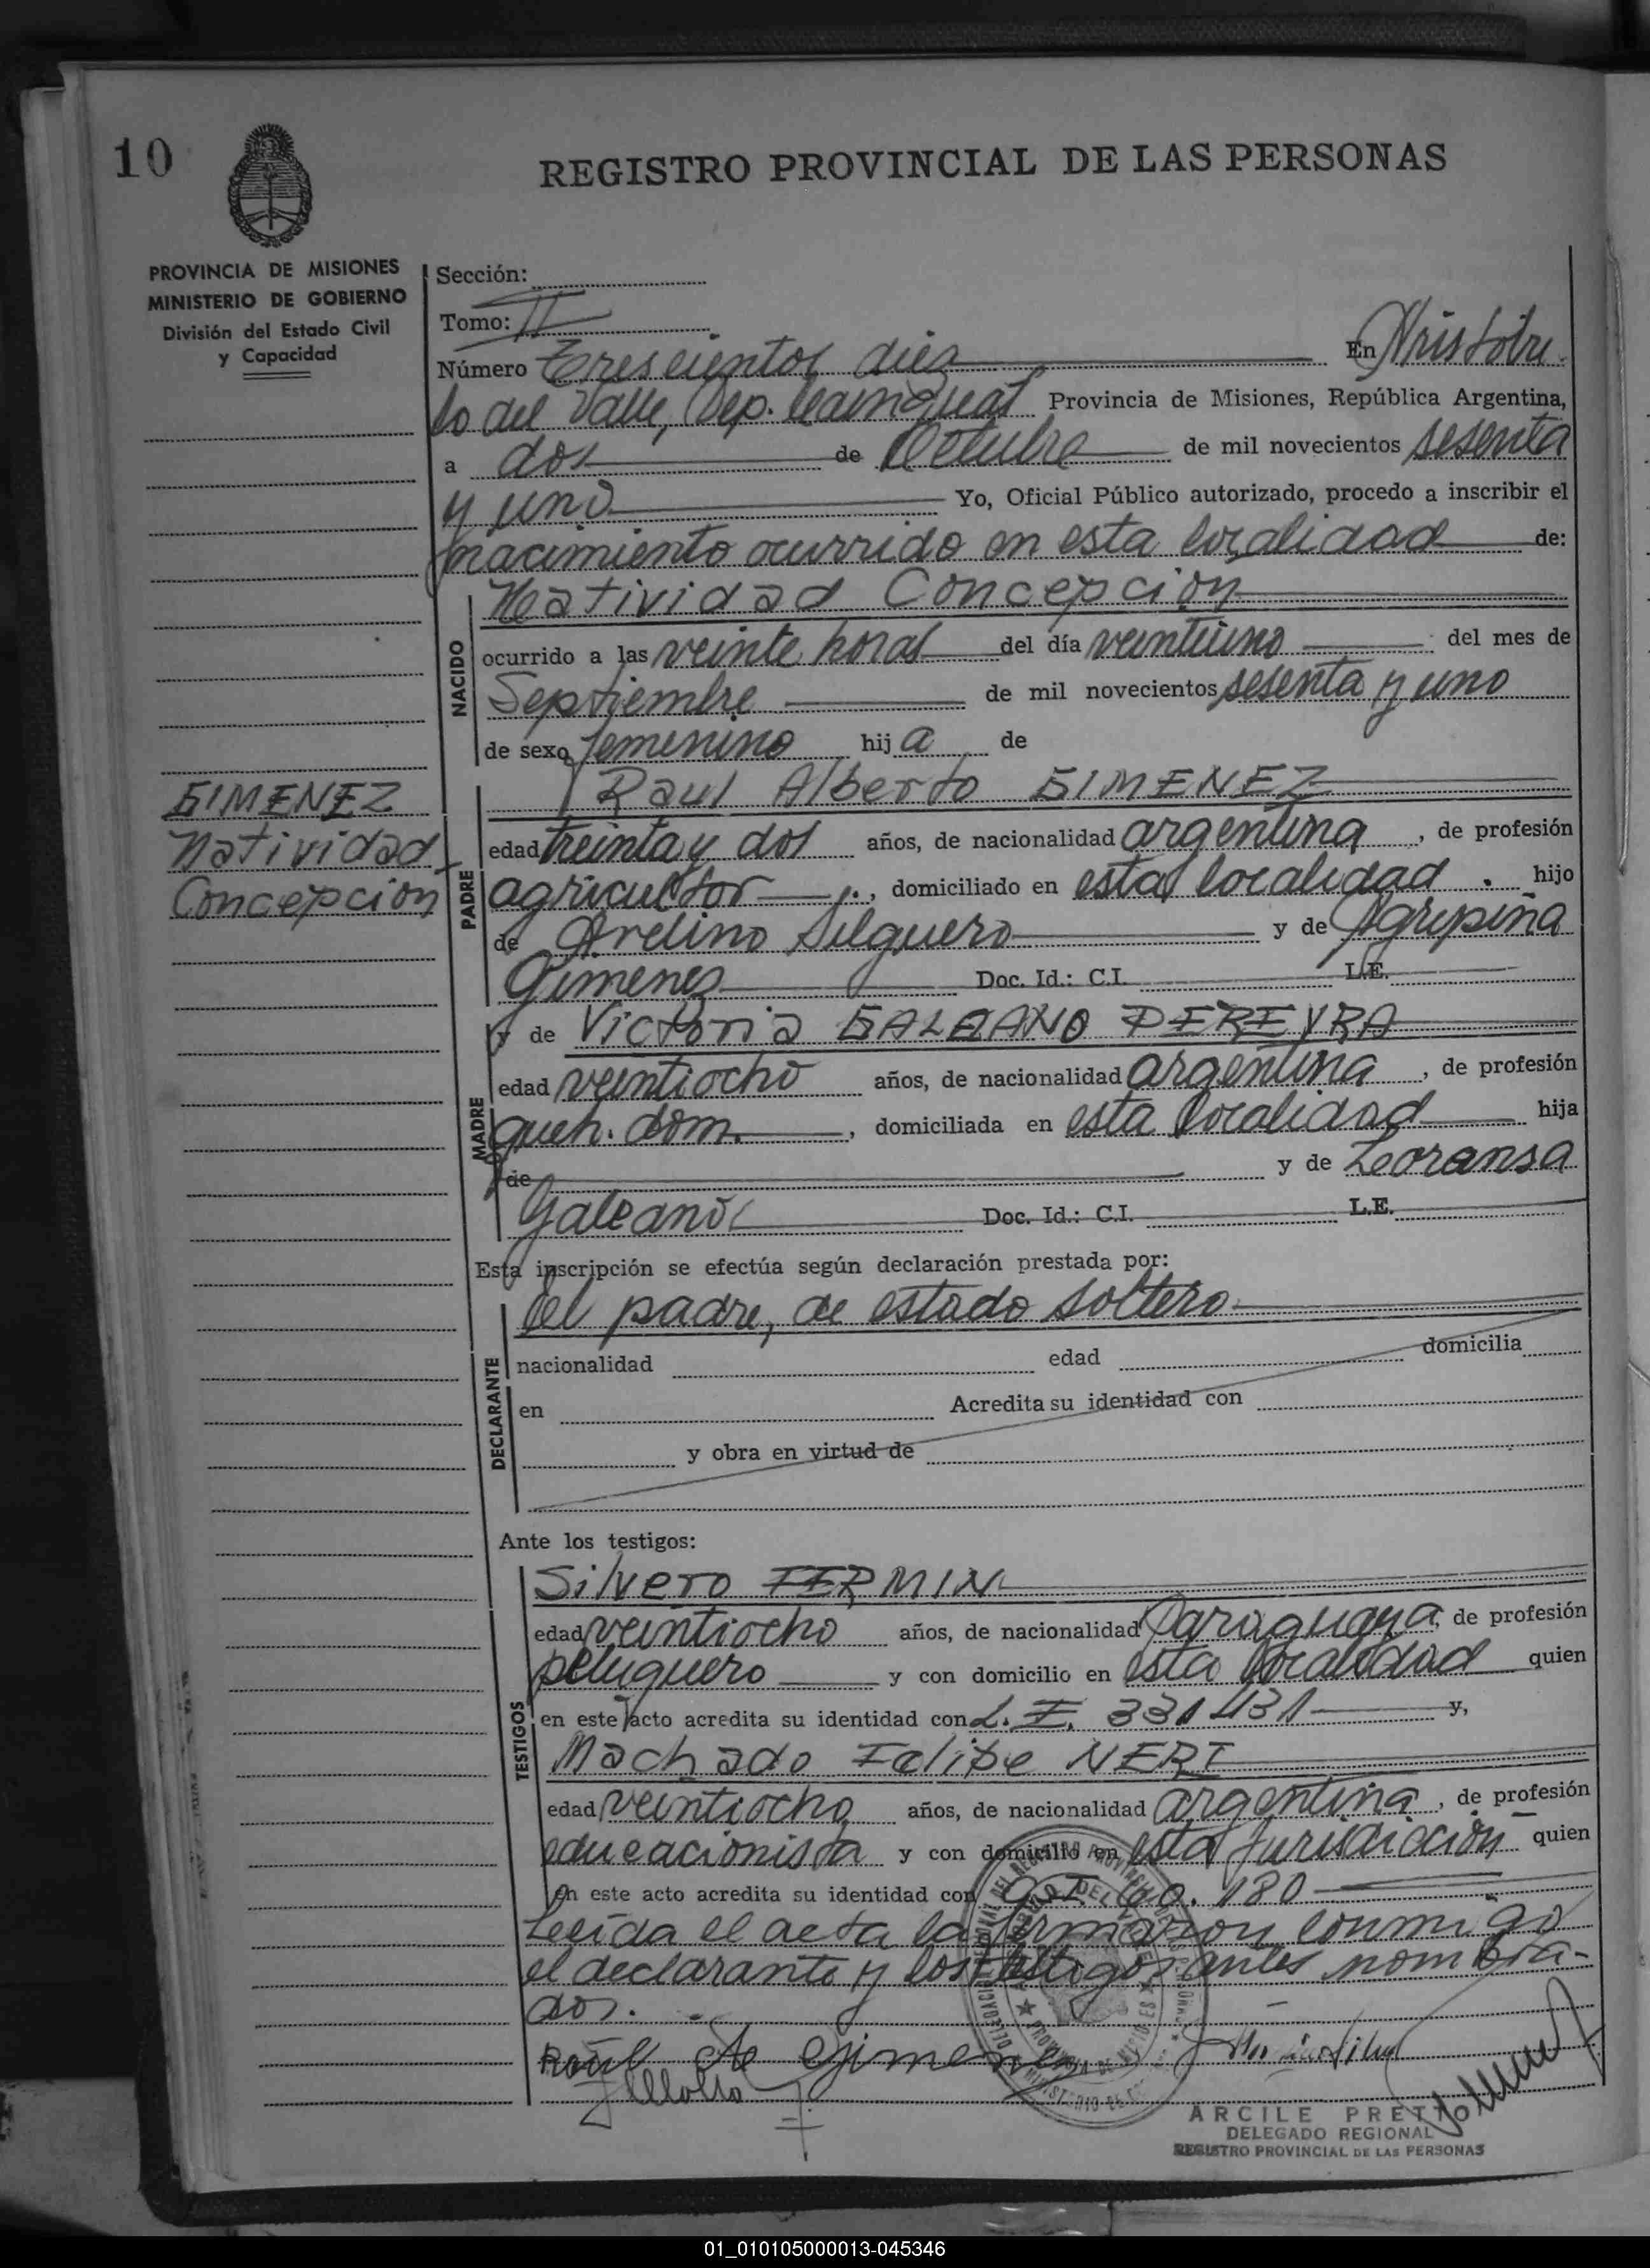 10
REGISTRO PROVINCIAL DE LAS PERSONAS
PROVINCIA DE MISIONES
MINISTERIO DE GOBIERNO
División del Estado Civil
y Capacidad
Sección:
Tomo: II
Número Trescientos diez En Aristóbu
lo del Valle, Dep. Cainguas Provincia de Misiones, República Argentina,
a dos de Octubre de mil novecientos sesenta
y uno Yo, Oficial Público autorizado, procedo a inscribir el
nacimiento ocurrido en esta localidad de:
NACIDO
Natividad Concepcion
ocurrido a las veinte horas del día veintiuno del mes de
Septiembre de mil novecientos sesenta y uno
de sexo femenino hij a de
GIMENEZ
Natividad
Concepcion
PADRE
Raul Alberto GIMENEZ
edad treinta y dos años, de nacionalidad argentina, de profesión
agricultor, domiciliado en esta localidad. hijo
de Avelino Silguero y de Agripina
Gimenez Doc. Id.: C.I. L.E.
MADRE
y de Victoria GALEANO PEREYRA
edad veintiocho años, de nacionalidad argentina, de profesión
queh. dom., domiciliada en esta localidad hija
de y de Loransa
Galeano Doc. Id.: C.I. L.E.
Esta inscripción se efectúa según declaración prestada por:
DECLARANTE
el padre, de estado soltero
nacionalidad edad domicilia
en Acredita su identidad con
y obra en virtud de
Ante los testigos:
TESTIGOS
Silvero FERMIN
edad veintiocho años, de nacionalidad Paraguaya, de profesión
peluquero y con domicilio en esta localidad quien
en este acto acredita su identidad con L.E. 331431 y,
Machado Felipe NERI
edad veintiocho años, de nacionalidad argentina, de profesión
educacionista y con domicilio en esta Jurisdicción quien
en este acto acredita su identidad con 180
Leida el acta la firmaron conmigo
el declarante y los testigos antes nombra-
dos.
Raul A Gimenez
ARCILE PRETTO
DELEGADO REGIONAL
REGISTRO PROVINCIAL DE LAS PERSONAS
01_010105000013-045346